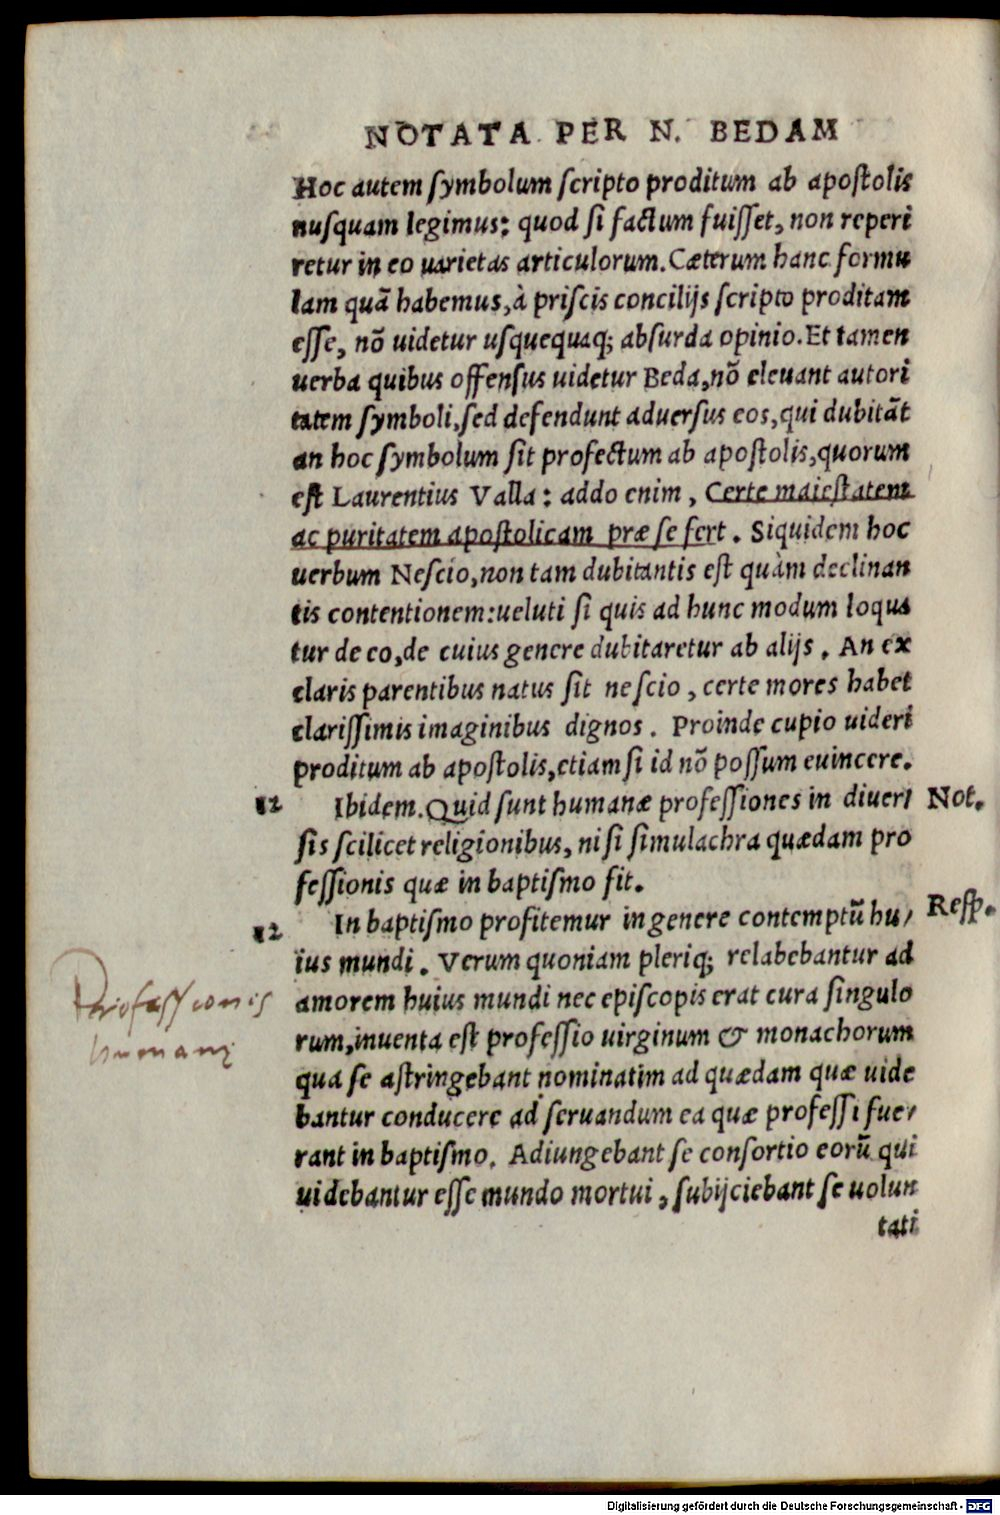 NOTATA PER N. BEDAM
Hoc autem ſymbolum ſcripto proditum ab apoſtolis
nuſquam legimus: quod ſi factum fuiſſet, non reperi
retur in eo uarietas articulorum. Cæterum hanc formu
lam quã habemus, à priſcis concilijs ſcripto proditam
eſſe, nõ uidetur uſquequaq; abſurda opinio. Et tamen
uerba quibus offenſus uidetur Beda, nõ eleuant autori
tatem ſymboli, ſed defendunt aduerſus eos, qui dubitãt
an hoc ſymbolum ſit profectum ab apoſtolis, quorum
eſt Laurentius Valla: addo enim, Certe maieſtatem
ac puritatem apoſtolicam præ ſe fert. Siquidem hoc
uerbum Neſcio, non tam dubitantis eſt quàm declinan
tis contentionem: ueluti ſi quis ad hunc modum loqua
tur de eo, de cuius genere dubitaretur ab alijs. An ex
claris parentibus natus ſit neſcio, certe mores habet
clariſſimis imaginibus dignos. Proinde cupio uideri
proditum ab apoſtolis, etiam ſi id nõ poſſum euincere.
12 Ibidem. Quid ſunt humanæ profeſſiones in diuer⸗ Not.
sis ſcilicet religionibus, niſi ſimulachra quædam pro
feſſionis quæ in baptiſmo fit.
12 In baptiſmo profitemur in genere contemptũ hu⸗ Reſp.
ius mundi. Verum quoniam pleriq; relabebantur ad
amorem huius mundi nec epiſcopis erat cura ſingulo
Professionis
rum, inuenta eſt profeſſio uirginum & monachorum
humanę
qua ſe aſtringebant nominatim ad quædam quæ uide
bantur conducere ad ſeruandum ea quæ profeſſi fue⸗
rant in baptiſmo. Adiungebant ſe conſortio eorũ qui
uidebantur eſſe mundo mortui, ſubijciebant ſe uolun
tati
Digitalisierung gefördert durch die Deutsche Forschungsgemeinschaft - DFG